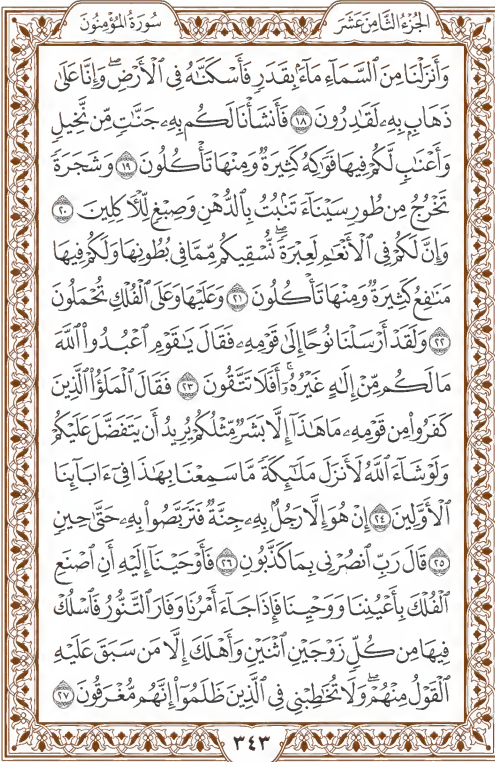 الجُزْءُ الثَّامِنُ عَشَرَ
سُورَةُ المُؤْمِنُونَ
وَأَنزَلْنَا مِنَ ٱلسَّمَآءِ مَآءًۢ بِقَدَرٍ فَأَسْكَنَّٰهُ فِى ٱلْأَرْضِ ۖ وَإِنَّا عَلَىٰ
ذَهَابٍۭ بِهِۦ لَقَٰدِرُونَ ١٨ فَأَنشَأْنَا لَكُم بِهِۦ جَنَّٰتٍ مِّن نَّخِيلٍ
وَأَعْنَٰبٍ لَّكُمْ فِيهَا فَوَٰكِهُ كَثِيرَةٌ وَمِنْهَا تَأْكُلُونَ ١٩ وَشَجَرَةً
تَخْرُجُ مِن طُورِ سَيْنَآءَ تَنۢبُتُ بِٱلدُّهْنِ وَصِبْغٍ لِّلْءَاكِلِينَ ٢٠
وَإِنَّ لَكُمْ فِى ٱلْأَنْعَٰمِ لَعِبْرَةً ۖ نُّسْقِيكُم مِّمَّا فِى بُطُونِهَا وَلَكُمْ فِيهَا
مَنَٰفِعُ كَثِيرَةٌ وَمِنْهَا تَأْكُلُونَ ٢١ وَعَلَيْهَا وَعَلَى ٱلْفُلْكِ تُحْمَلُونَ
٢٢ وَلَقَدْ أَرْسَلْنَا نُوحًا إِلَىٰ قَوْمِهِۦ فَقَالَ يَٰقَوْمِ ٱعْبُدُوا۟ ٱللَّهَ
مَا لَكُم مِّنْ إِلَٰهٍ غَيْرُهُۥٓ ۚ أَفَلَا تَتَّقُونَ ٢٣ فَقَالَ ٱلْمَلَؤُا۟ ٱلَّذِينَ
كَفَرُوا۟ مِن قَوْمِهِۦ مَا هَٰذَآ إِلَّا بَشَرٌ مِّثْلُكُمْ يُرِيدُ أَن يَتَفَضَّلَ عَلَيْكُمْ
وَلَوْ شَآءَ ٱللَّهُ لَأَنزَلَ مَلَٰٓئِكَةً مَّا سَمِعْنَا بِهَٰذَا فِىٓ ءَابَآئِنَا
ٱلْأَوَّلِينَ ٢٤ إِنْ هُوَ إِلَّا رَجُلٌۢ بِهِۦ جِنَّةٌ فَتَرَبَّصُوا۟ بِهِۦ حَتَّىٰ حِينٍ
٢٥ قَالَ رَبِّ ٱنصُرْنِى بِمَا كَذَّبُونِ ٢٦ فَأَوْحَيْنَآ إِلَيْهِ أَنِ ٱصْنَعِ
ٱلْفُلْكَ بِأَعْيُنِنَا وَوَحْيِنَا فَإِذَا جَآءَ أَمْرُنَا وَفَارَ ٱلتَّنُّورُ ۙ فَٱسْلُكْ
فِيهَا مِن كُلٍّ زَوْجَيْنِ ٱثْنَيْنِ وَأَهْلَكَ إِلَّا مَن سَبَقَ عَلَيْهِ
ٱلْقَوْلُ مِنْهُمْ ۖ وَلَا تُخَٰطِبْنِى فِى ٱلَّذِينَ ظَلَمُوٓا۟ ۖ إِنَّهُم مُّغْرَقُونَ ٢٧
٣٤٣